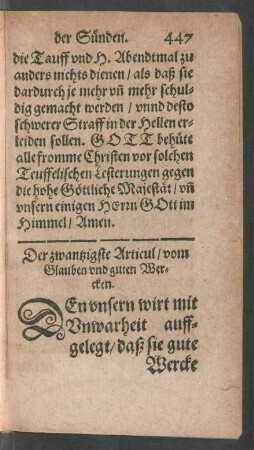 der Sünden. 447
die Tauff vnd H. Abendtmal zu
anders nichts dienen / als daß sie
dardurch je mehr vñ mehr schul-
dig gemacht werden / vnnd desto
schwerer Straff in der Hellen er-
leiden sollen. GOTT behüte
alle fromme Christen vor solchen
Teuffelischen Lesterungen gegen
die hohe Göttliche Majestät / vñ
vnsern einigen HErrn GOtt im
Himmel / Amen.
Der zwantzigste Articul / vom
Glauben vnd guten Wer-
cken.
DEn vnsern wirt mit
Vnwarheit auff-
gelegt / daß sie gute
Wercke